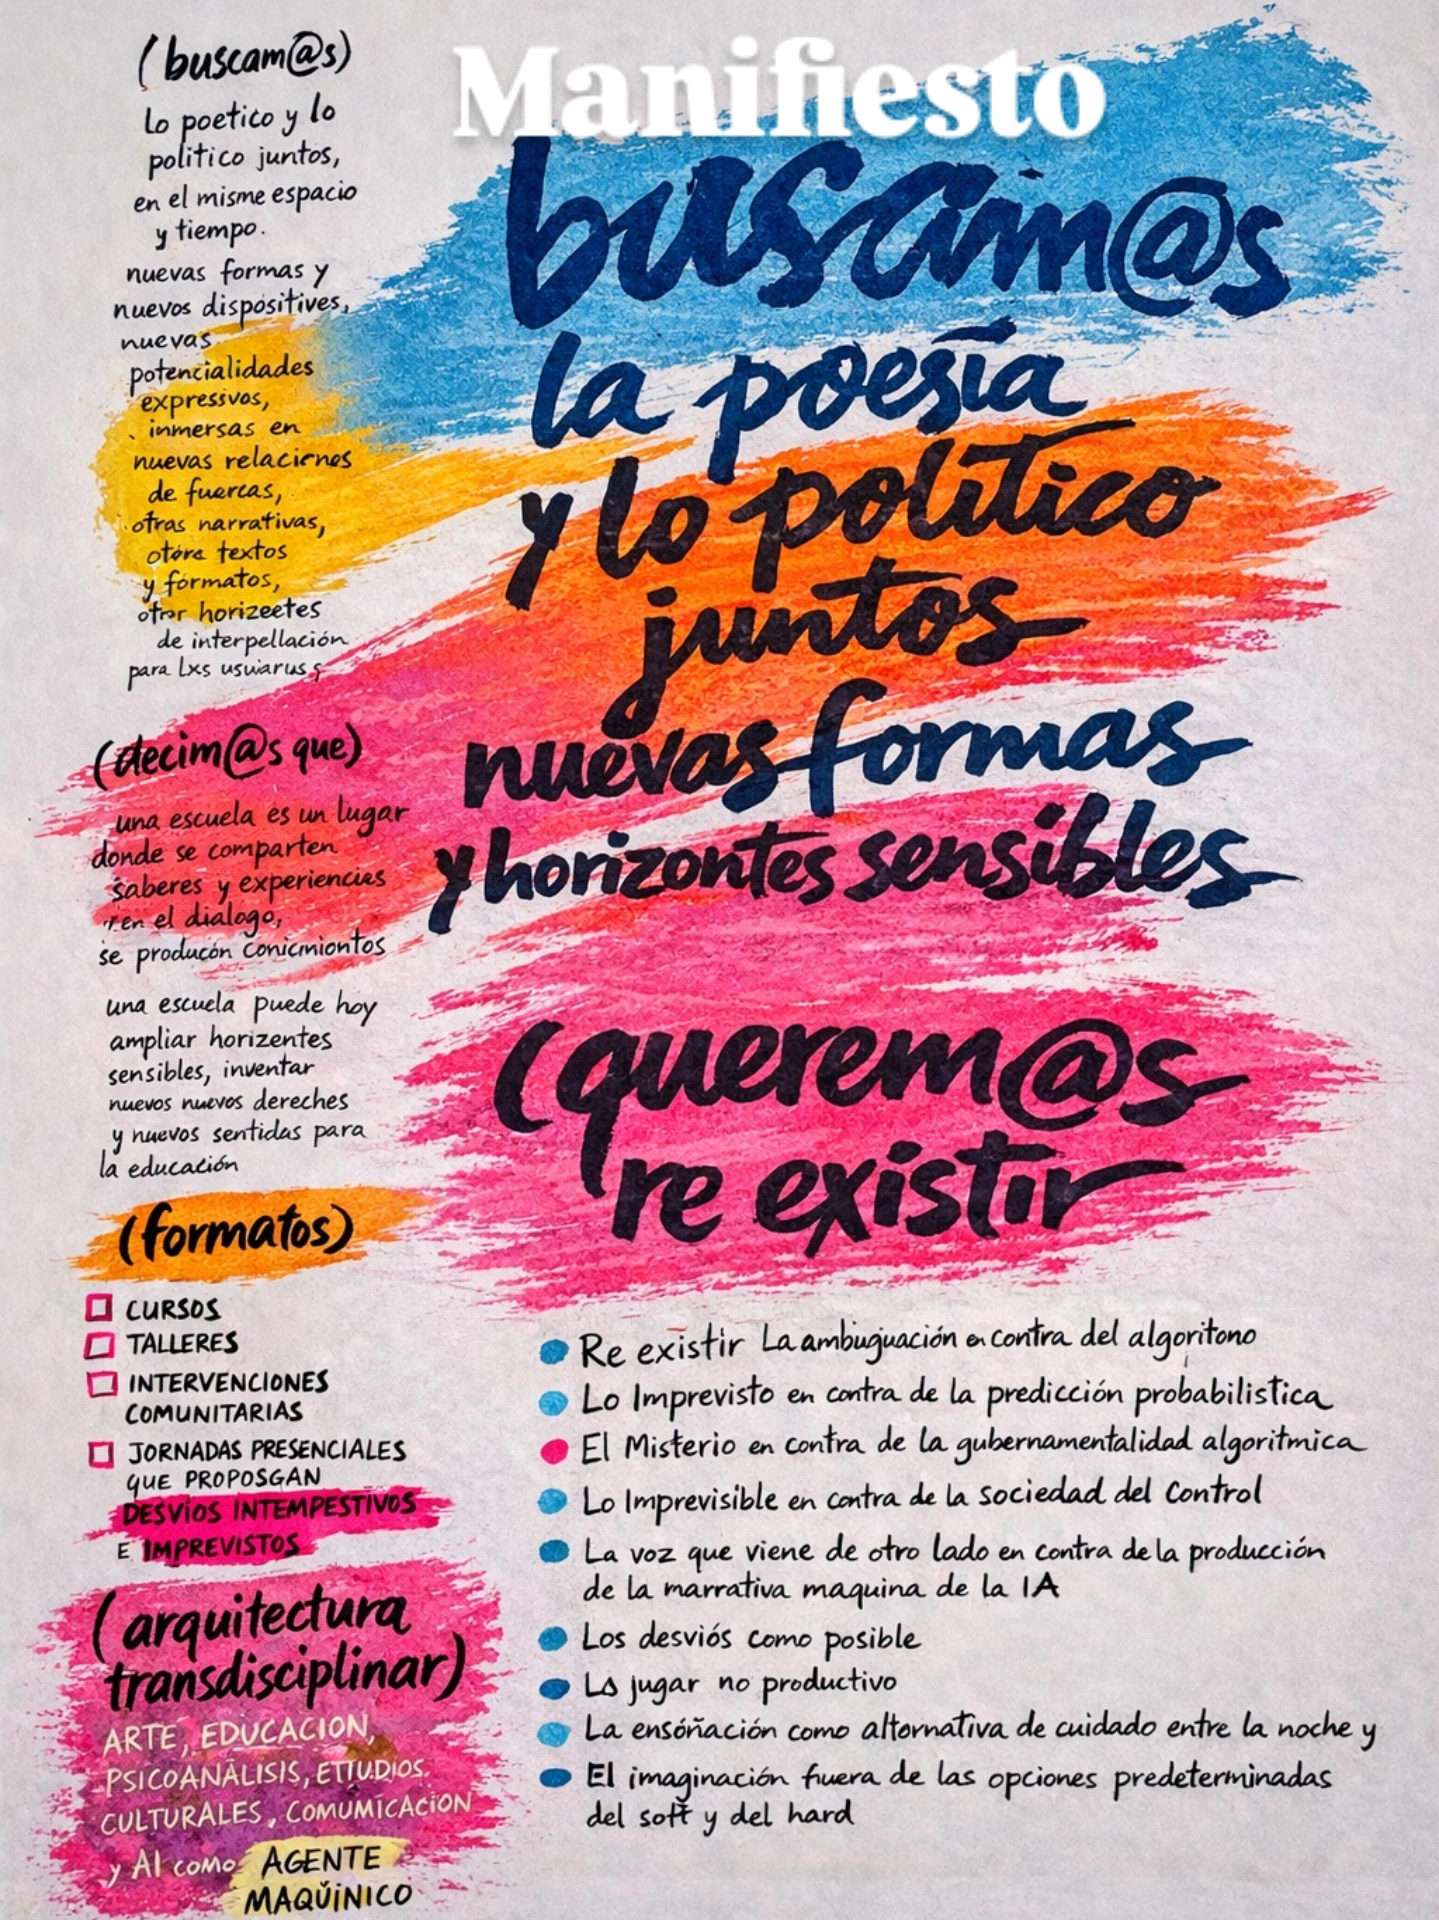 Manifiesto
(buscam@s)
lo poetico y lo
politico juntos,
en el misme espacio
y tiempo.
nuevas formas y
nuevos dispositives,
nuevas
potencialidades
expressvos,
inmersas en
nuevas relacirnes
de fuercas,
otras narrativas,
otore textos
y formatos,
otror horizeetes
de interpellación
para lxs usuiarus s
(decim@s que)
una escuela es un lugar
donde se comparten
saberes y experiencias
en el dialogo,
se producón conicmiontos
una escuela puede hoy
ampliar horizentes
sensibles, inventar
nuevos nuevos dereches
y nuevos sentidas para
la educación
(formatos)
CURSOS
TALLERES
INTERVENCIONES
COMUNITARIAS
JORNADAS PRESENCIALES
QUE PROPOSGAN
DESVIOS INTEMPESTIVOS
E IMPREVISTOS
(arquitectura
transdisciplinar)
ARTE, EDUCACION,
PSICOANÀLISIS, ETTUDIOS.
CULTURALES, COMUMICACION
y AI como AGENTE
MAQŬINICO
buscam@s
la poesía
y lo político
juntos
nuevas formas
y horizontes sensibles
(querem@s
re existir
Re existir La ambiguación en contra del algoritono
Lo Imprevisto en contra de la predicción probabilistica
El Misterio en contra de la gubernamentalidad algoritmica
Lo Imprevisible en contra de la sociedad del Control
La voz que viene de otro lado en contra de la producción
de la marrativa maquina de la IA
Los desviós como posible
La jugar no productivo
La ensóñación como altornativa de cuidado entre la noche y
El imaginación fuera de las opciones predeterminadas
del soft y del hard